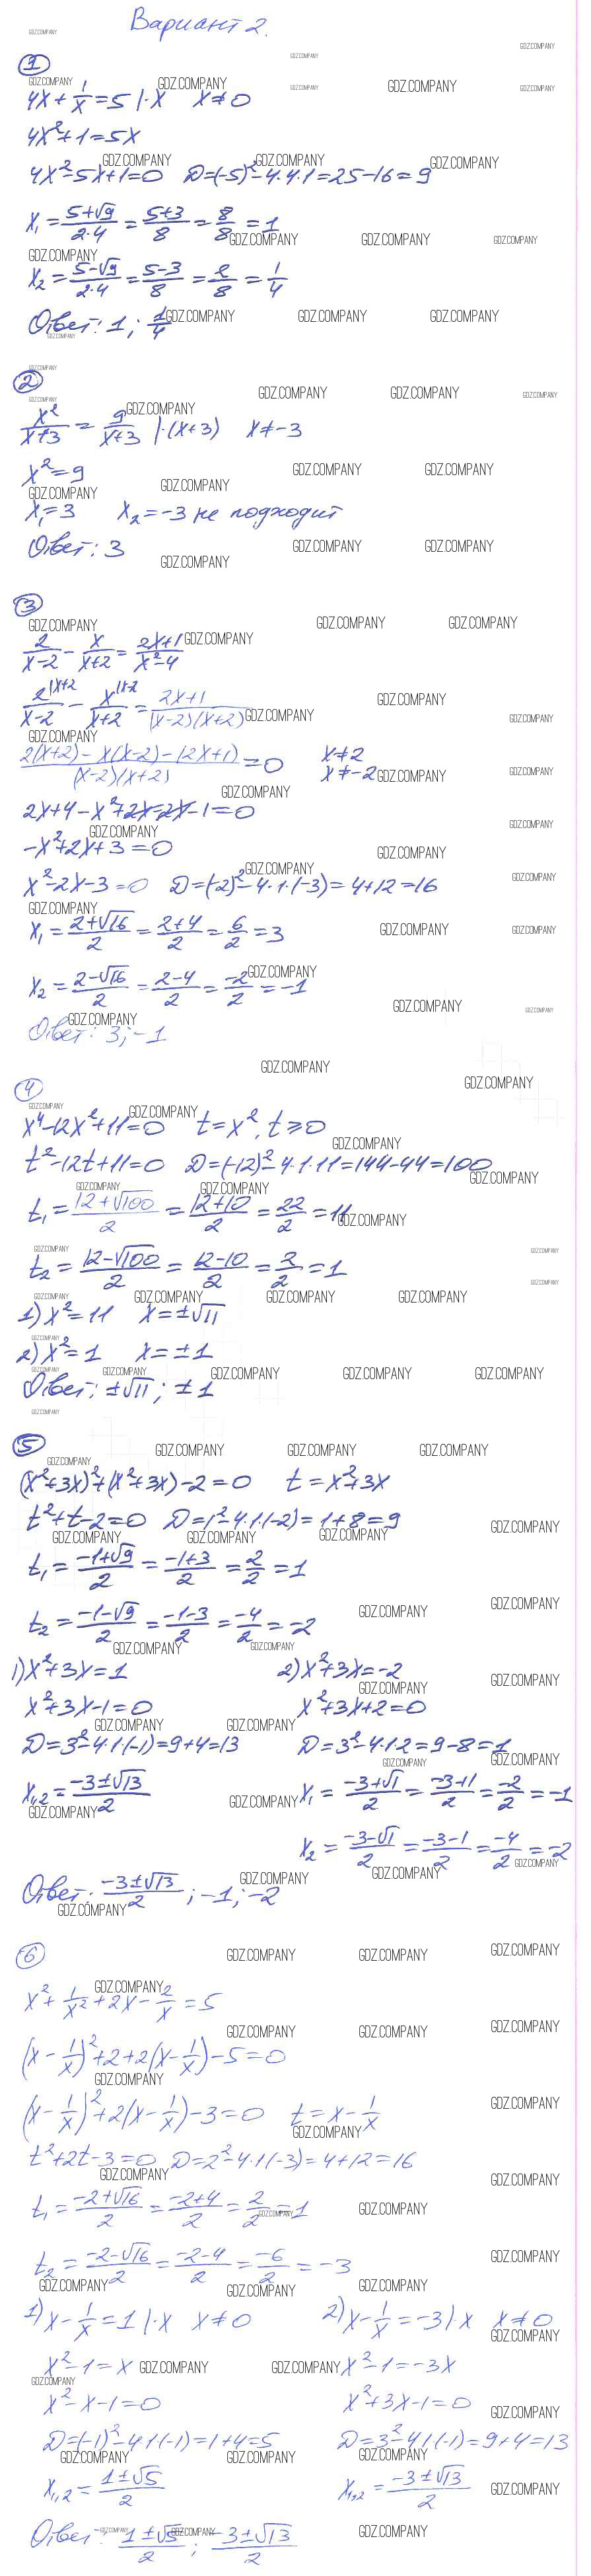 Вариант 2.
1
4x + 1/x = 5 |·x   x ≠ 0
4x² + 1 = 5x
4x² - 5x + 1 = 0   D = (-5)² - 4·4·1 = 25 - 16 = 9
x₁ = (5+√9)/(2·4) = (5+3)/8 = 8/8 = 1
x₂ = (5-√9)/(2·4) = (5-3)/8 = 2/8 = 1/4
Ответ: 1; 1/4
2
x²/(x+3) = 9/(x+3) |·(x+3)   x ≠ -3
x² = 9
x₁ = 3   x₂ = -3 не подходит
Ответ: 3
3
2/(x-2) - x/(x+2) = (2x+1)/(x²-4)
2|x+2/(x-2) - x|x-2/(x+2) = (2x+1)/((x-2)(x+2))
(2(x+2) - x(x-2) - (2x+1))/((x-2)(x+2)) = 0   x ≠ 2
x ≠ -2
2x + 4 - x² + 2x - 2x - 1 = 0
-x² + 2x + 3 = 0
x² - 2x - 3 = 0   D = (-2)² - 4·1·(-3) = 4 + 12 = 16
x₁ = (2+√16)/2 = (2+4)/2 = 6/2 = 3
x₂ = (2-√16)/2 = (2-4)/2 = -2/2 = -1
Ответ: 3; -1
4
x⁴ - 12x² + 11 = 0   t = x², t ≥ 0
t² - 12t + 11 = 0   D = (-12)² - 4·1·11 = 144 - 44 = 100
t₁ = (12+√100)/2 = (12+10)/2 = 22/2 = 11
t₂ = (12-√100)/2 = (12-10)/2 = 2/2 = 1
1) x² = 11   x = ±√11
2) x² = 1   x = ±1
Ответ: ±√11; ±1
5
(x²+3x)² + (x²+3x) - 2 = 0   t = x² + 3x
t² + t - 2 = 0   D = 1² - 4·1·(-2) = 1 + 8 = 9
t₁ = (-1+√9)/2 = (-1+3)/2 = 2/2 = 1
t₂ = (-1-√9)/2 = (-1-3)/2 = -4/2 = -2
1) x² + 3x = 1   2) x² + 3x = -2
x² + 3x - 1 = 0   x² + 3x + 2 = 0
D = 3² - 4·1·(-1) = 9 + 4 = 13   D = 3² - 4·1·2 = 9 - 8 = 1
x₁,₂ = (-3±√13)/2   x₁ = (-3+√1)/2 = (-3+1)/2 = -2/2 = -1
x₂ = (-3-√1)/2 = (-3-1)/2 = -4/2 = -2
Ответ: (-3±√13)/2; -1; -2
6
x² + 1/x² + 2x - 2/x = 5
(x - 1/x)² + 2 + 2(x - 1/x) - 5 = 0
(x - 1/x)² + 2(x - 1/x) - 3 = 0   t = x - 1/x
t² + 2t - 3 = 0   D = 2² - 4·1·(-3) = 4 + 12 = 16
t₁ = (-2+√16)/2 = (-2+4)/2 = 2/2 = 1
t₂ = (-2-√16)/2 = (-2-4)/2 = -6/2 = -3
1) x - 1/x = 1 |·x   x ≠ 0   2) x - 1/x = -3 |·x   x ≠ 0
x² - 1 = x   x² - 1 = -3x
x² - x - 1 = 0   x² + 3x - 1 = 0
D = (-1)² - 4·1·(-1) = 1 + 4 = 5   D = 3² - 4·1·(-1) = 9 + 4 = 13
x₁,₂ = (1±√5)/2   x₁,₂ = (-3±√13)/2
Ответ: (1±√5)/2; (-3±√13)/2
GDZ.COMPANY